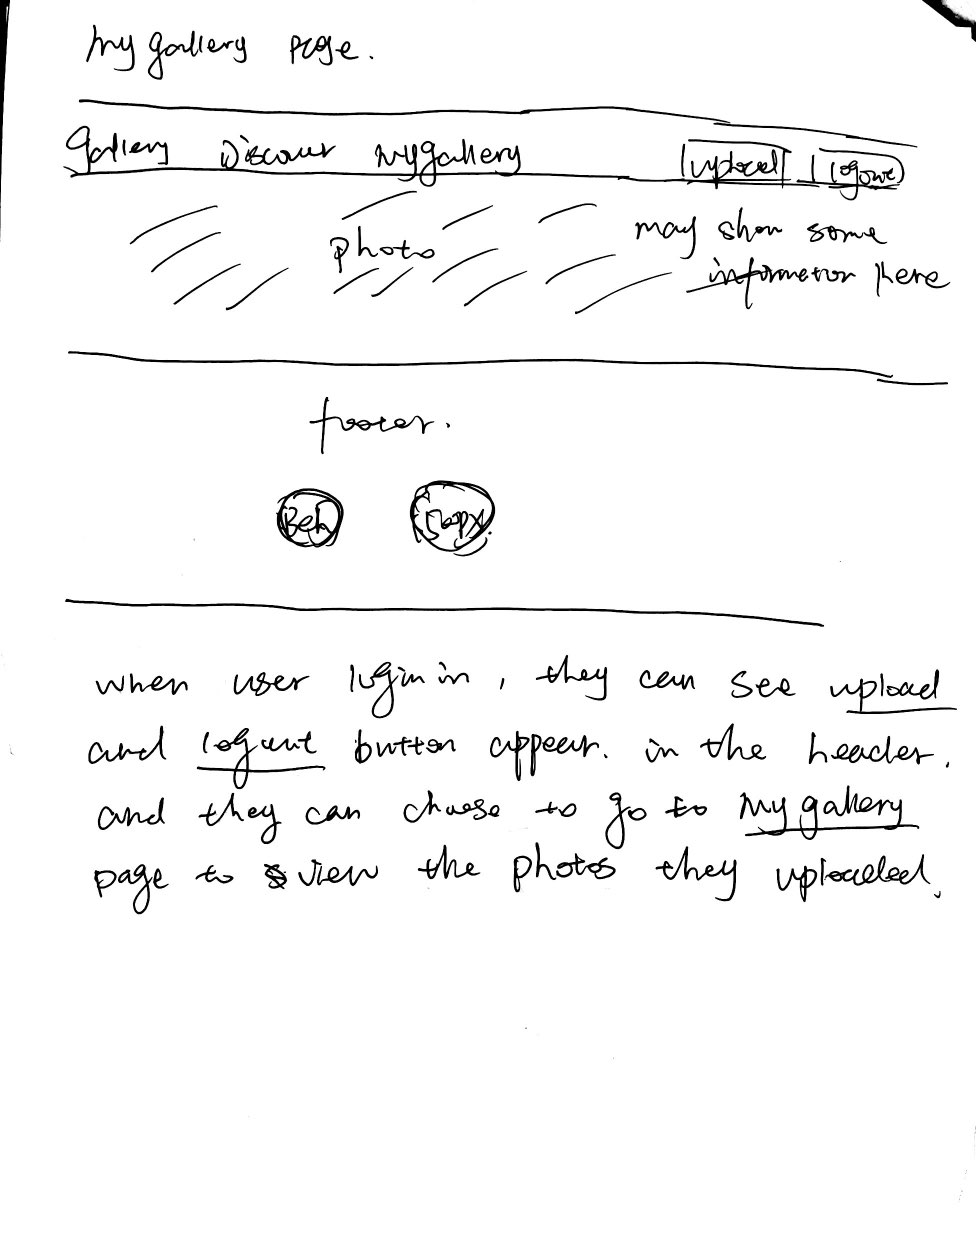 my gallery page.
Gallery Discover My gallery upload logout
photo may show some
information here
footer.
Beh 500px
when user login in, they can see upload
and logout button appear. in the header.
and they can choose to go to My gallery
page to view the photos they uploaded.